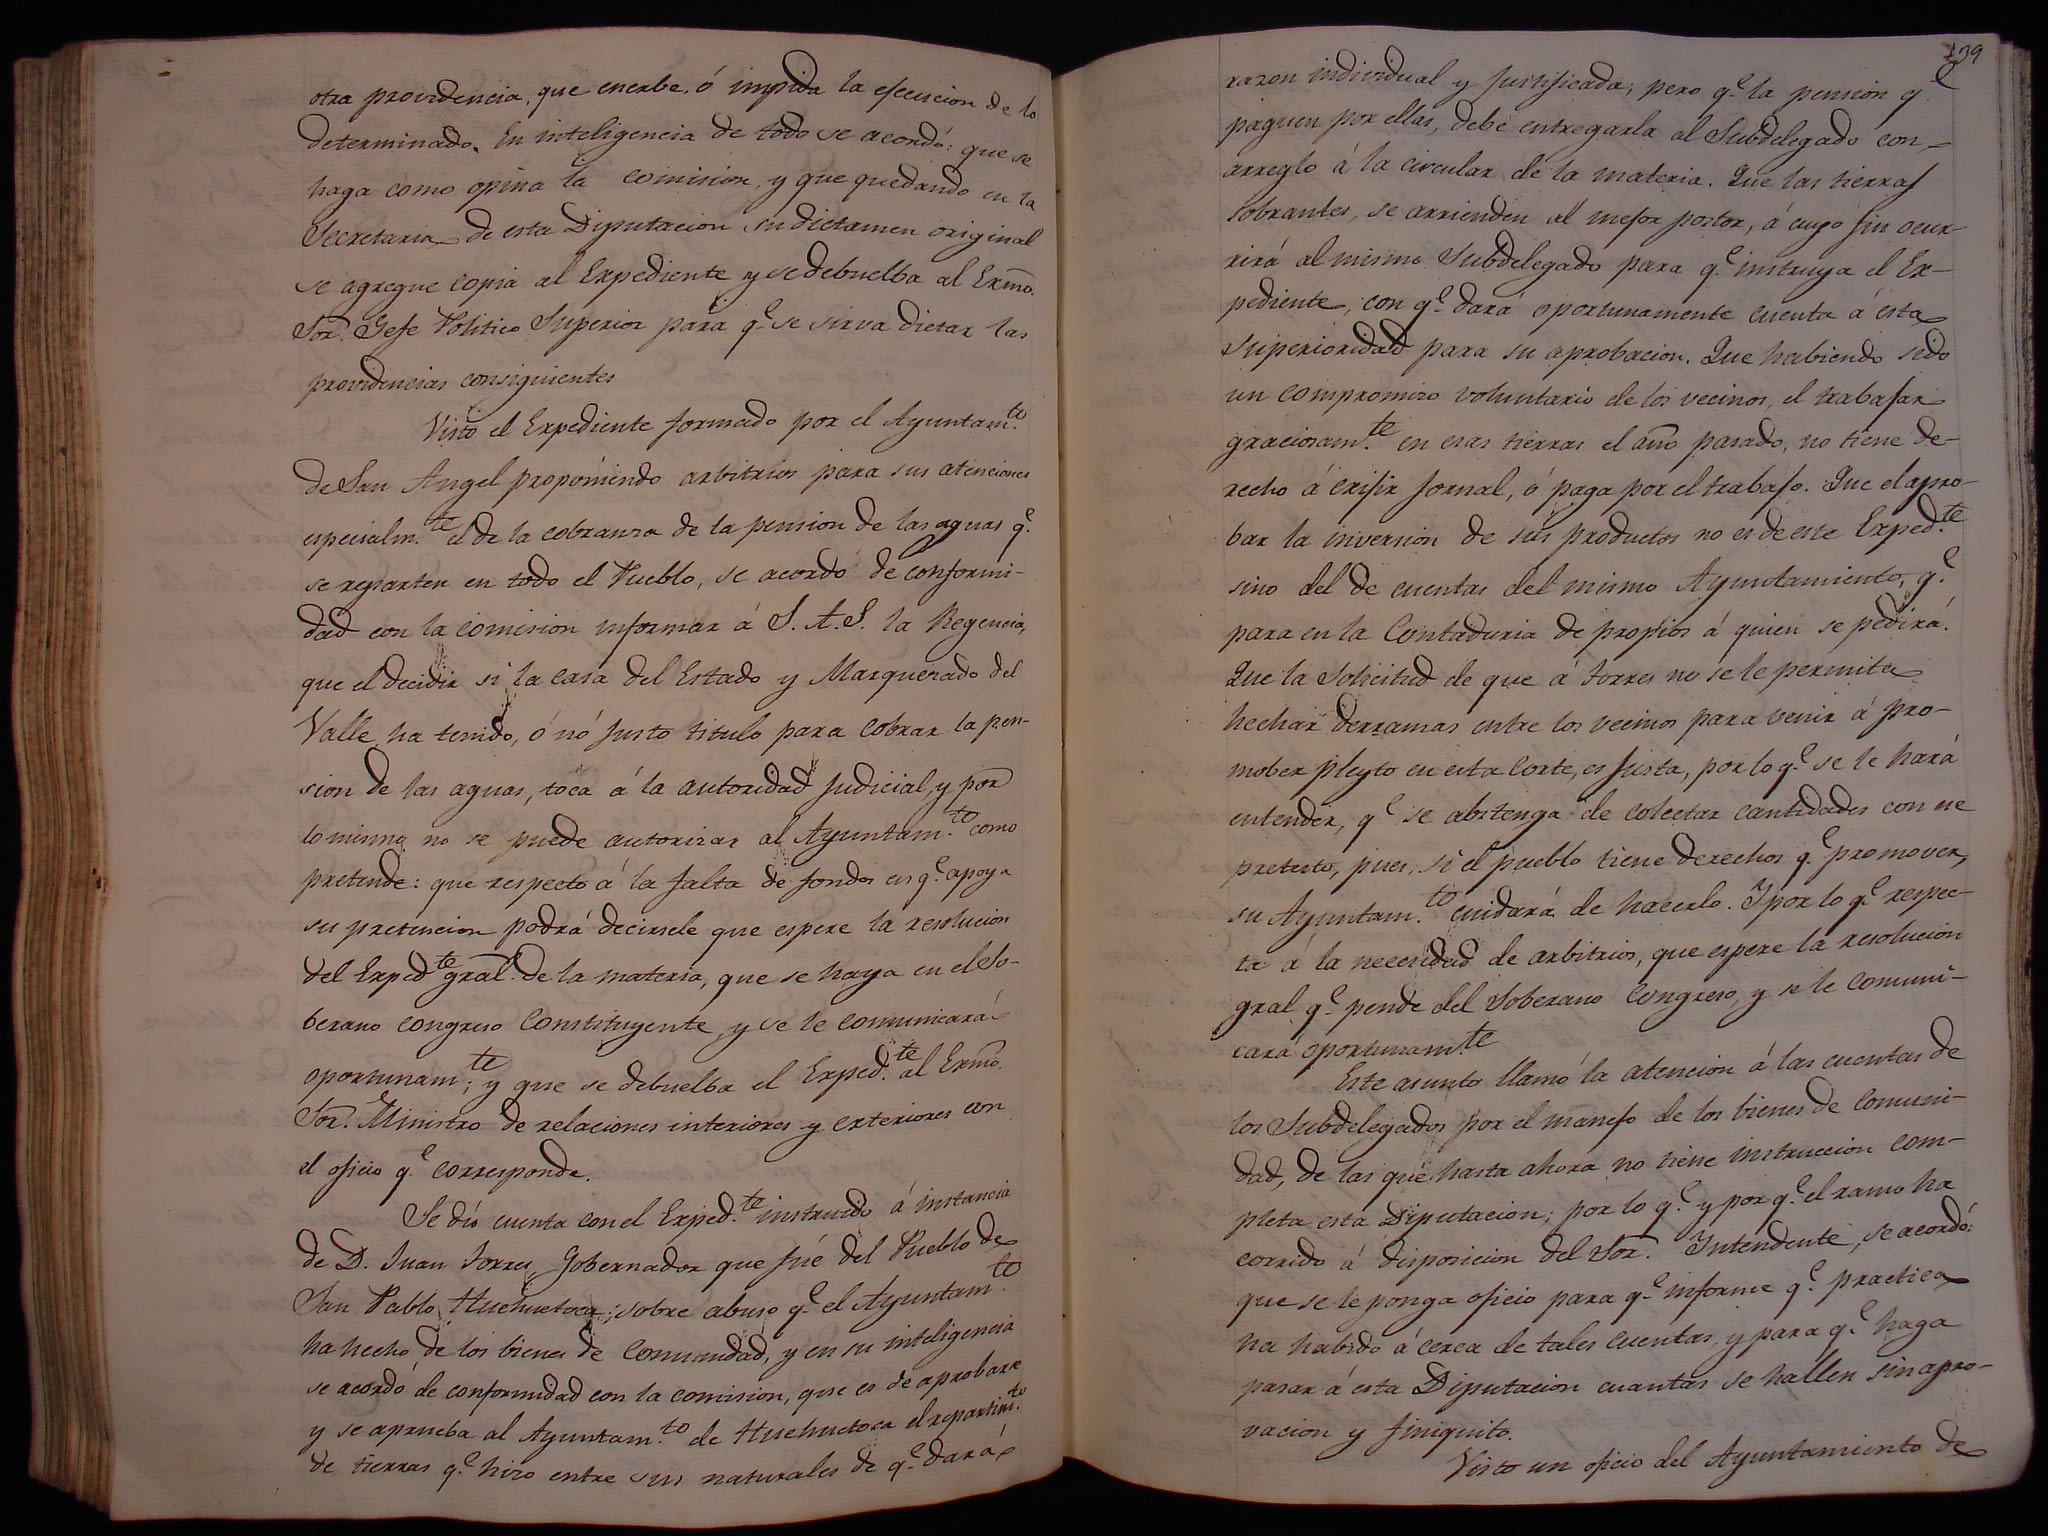 otra providencia, que enerbe, ó impida la efecucion de lo
determinado. En inteligencia de todo se acordó: que se
haga como opina la comision, y que quedando en la
Secretaria de esta Diputacion su dictamen original
se agregue copia al Expediente y se debuelba al Exmo.
Sor. Gefe Politico Superior para q.e se sirva dictar las
providencias consiguientes
Visto el Expediente formado por el Ayuntam.to
de San Angel proponiendo arbitrios para sus atenciones
especialm.te el de la cobranza de la pension de las aguas q.e
se reparten en todo el Pueblo, se acordó de conformi-
dad con la comision informar á S. A. S. la Regencia,
que el decidir si la casa del Estado y Marquezado del
Valle ha tenido, ó nó justo titulo para cobrar la pen-
sion de las aguas, toca á la autoridad judicial, y por
lo mismo no se puede autorizar al Ayuntam.to como
pretende: que respecto á la falta de fondos en q.e apoya
su pretencion podrá decirsele que espere la resolucion
del Exped.te gral. de la materia, que se haya en el So-
berano congreso Constituyente, y se le comunicará
oportunam.te; y que se debuelba el Exped.te al Exmo.
Sor. Ministro de relaciones interiores y exteriores con
el oficio q.e corresponde.
Se dió cuenta con el Exped.te instruido á instancia
de D. Juan Torres, Gobernador que fué del Pueblo de
San Pablo Huehuetoca; sobre abuso q.e el Ayuntam.to
ha hecho de los bienes de Comunidad, y en su inteligencia
se acordó de conformidad con la comision, que es de aprobarse
y se aprueba al Ayuntam.to de Huehuetoca el repartim.to
de tierras q.e hizo entre sus naturales de q.e dará
139
razon individual y justificada; pero q.e la pension q.e
paguen por ellas, debe entregarla al Subdelegado con
arreglo á la circular de la materia. Que las tierras
sobrantes, se arrienden al mejor postor, á cuyo fin ocur-
rirá al mismo Subdelegado para q.e instruya el Ex-
pediente, con q.e dará oportunamente cuenta á esta
Superioridad para su aprobacion. Que habiendo sido
un compromiso voluntario de los vecinos, el trabajar
graciosam.te en esas tierras el año pasado, no tiene de-
recho á exijir jornal, ó paga por el trabajo. Que el apro-
bar la inversion de sus productos no es de este Exped.te
sino del de cuentas del mismo Ayuntamiento, q.e
para en la Contaduria de propios á quien se pedirá.
Que la Solicitud de que á Torres no se le permita
hechar derramas entre los vecinos para venir á pro-
mober pleyto en esta Corte, es justa, por lo q.e se le hará
entender, q.e se abstenga de colectar cantidades con ese
pretesto, pues, si el pueblo tiene derechos q.e promover,
su Ayuntam.to cuidará de hacerlo. Y por lo q.e respec-
ta á la necesidad de arbitrios, que espere la resolucion
gral. q.e pende del Soberano Congreso, y se le comuni-
cará oportunam.te
Este asunto llamó la atencion á las cuentas de
los Subdelegados por el manejo de los bienes de Comuni-
dad, de las que hasta ahora no tiene instruccion com-
pleta esta Diputacion; por lo q.e y por q.e el ramo ha
corrido á disposicion del Sor. Intendente, se acordó:
que se le ponga oficio para q.e informe q.e practica
ha habido á cerca de tales cuentas, y para q.e haga
pasar á esta Diputacion cuantas se hallen sin apro-
vacion y finiquito.
Visto un oficio del Ayuntamiento de